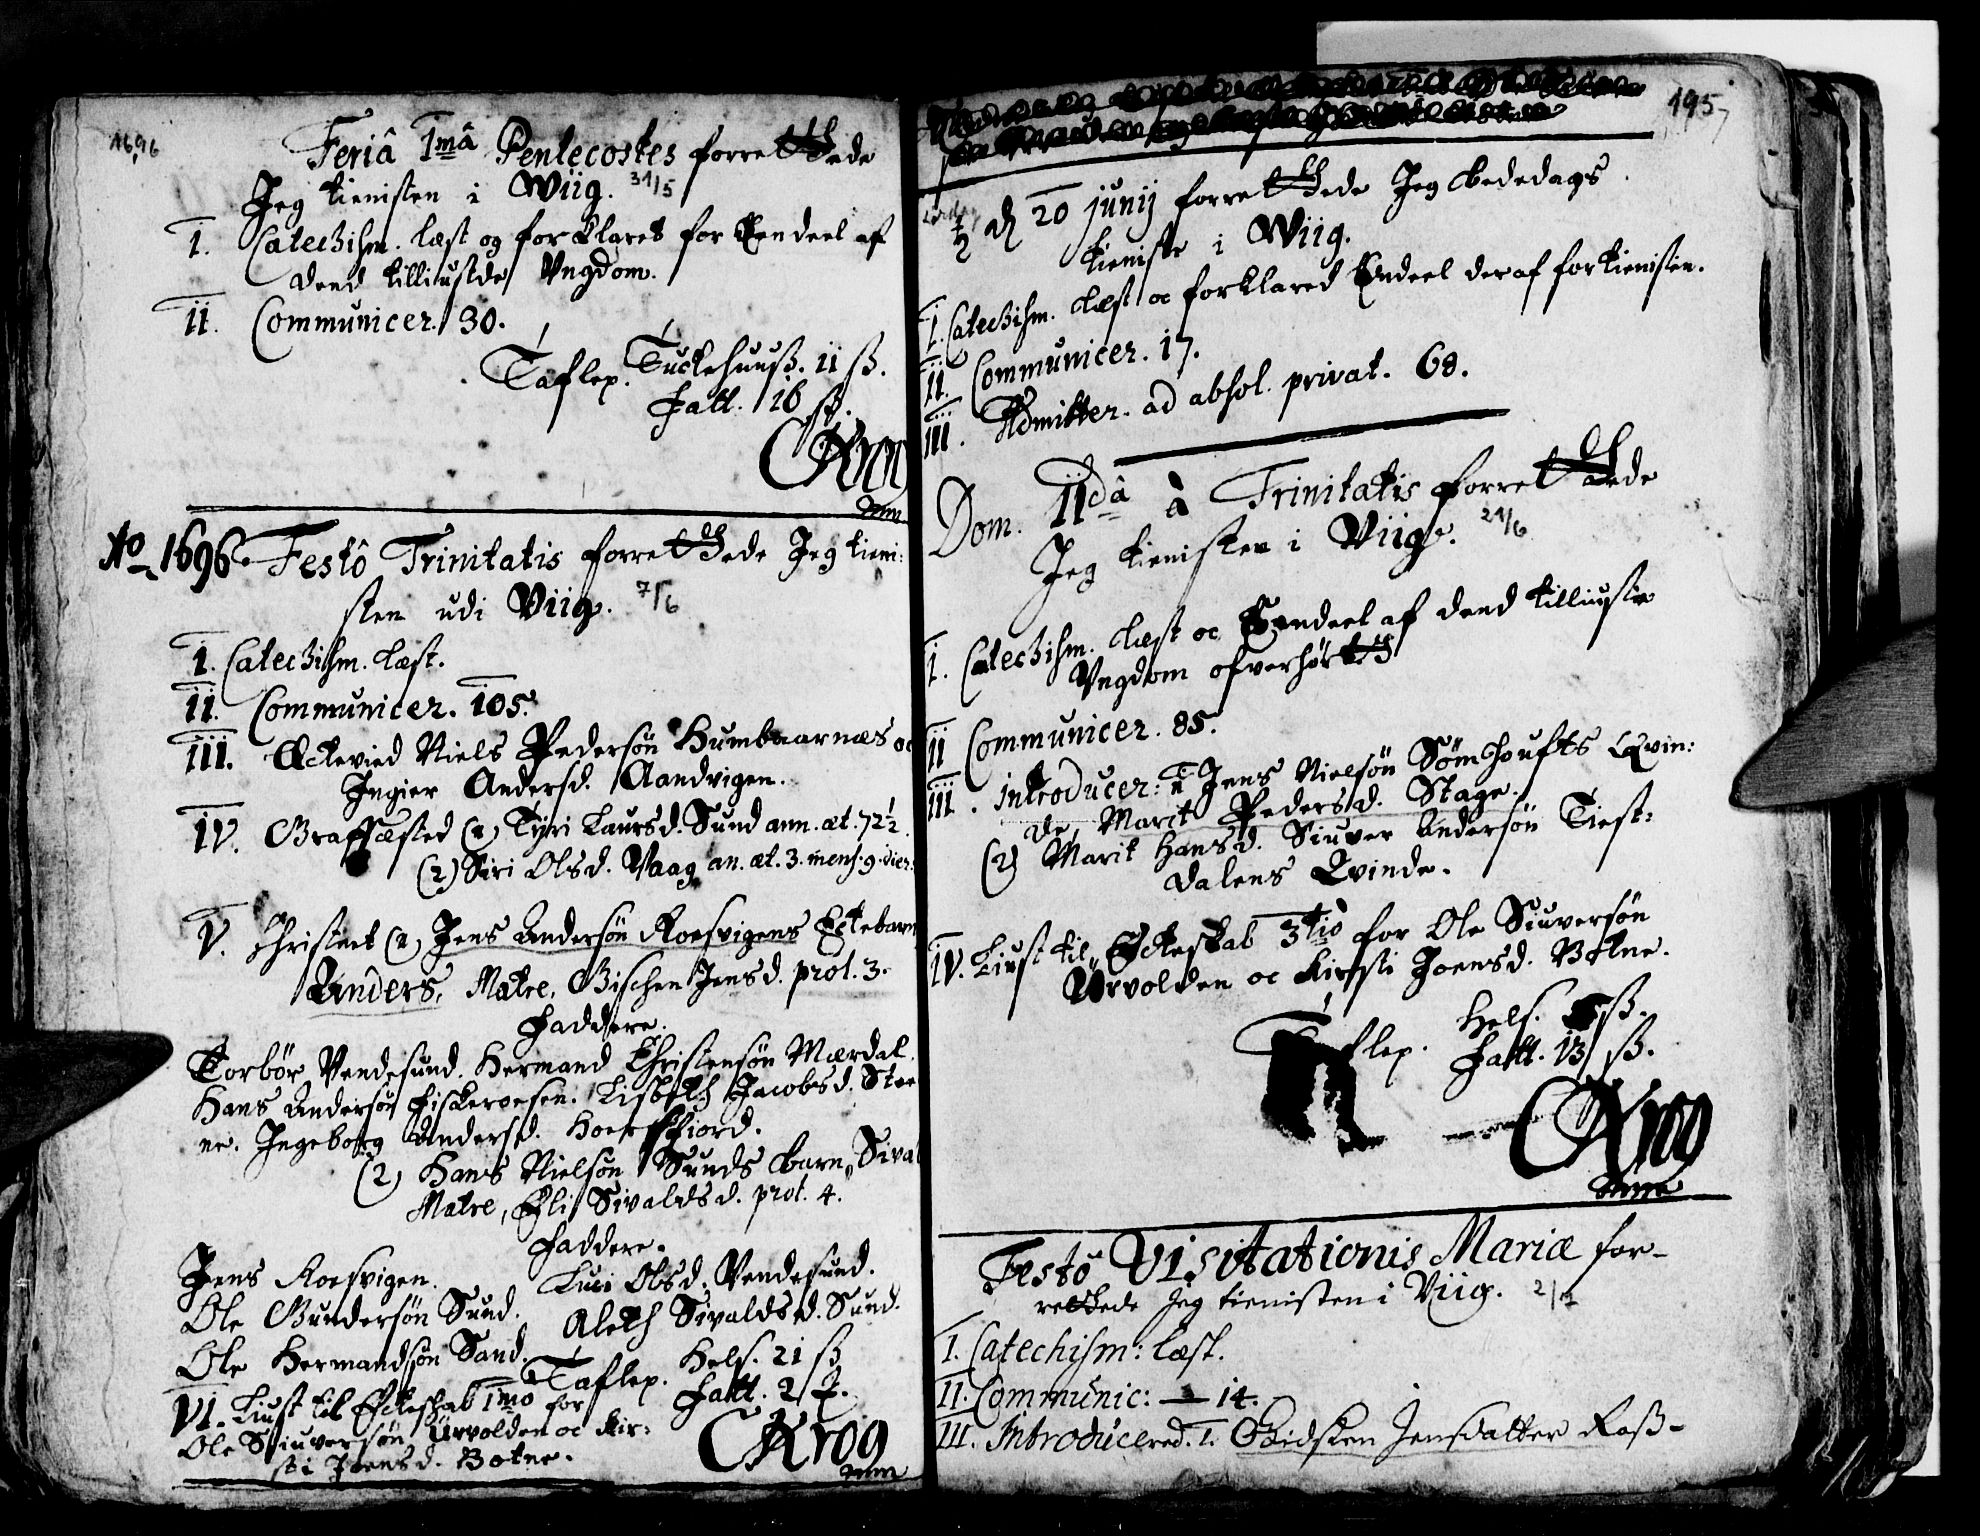 1696
Feriâ 1mâ Pentecostes forrettede
Jeg tienisten i Wiig. 31/5
I. Catechism. læst og forklaret for Eendeel af
dend tilliustde Vngdom.
II. Communicer. 30.
Taflep. Tuckehuuß. 11 ß.
Fatt. 16 ß.
CKrog
mm
Ao 1696. Festô Trinitatis forrettede Jeg tieni:
sten udi Viig. 7/6
I. Catechism. læst.
II. Communicer. 105.
III. Ectevied Niels Pedersøn Humbaarnæs oc
Ingier Andersd. Aandvigen.
IV. Graffæsted (1) Tyri Laursd. Sund ann. æt. 72½.
(2) Siri Olsd. Vaag an. æt. 3. mens. 9. dier.
V. Christnet (1) Jens Andersøn Roesvigens Ectebarn
Anders, Matre, Gischen Jensd. prot. 3.
Faddere.
Torbør Vendesund. Hermand Christensøn Mærdal.
Hans Andersøn Fiskeroesen. Lisbeth Jacobsd. Stee
ne. Ingeborg Andersd. Hoersfiord.
(2) Hans Nielsøn Sunds barn, Sival
Matre, Eli Sivaldsd. prot. 4.
Faddere.
Jens Roesvigen. Luci Olsd. Vendesund.
Ole Gundersøn Sund. Aleth Sivaldsd. Sund.
Ole Hermandsøn Sand.
Taflep. Helf. 21 ß
Fatt. 2
VI. Liust til Ecteskab 1mo for
Ole Siuversøn Urvolden oc Kir:
sti Joensd. Botne.
CKrog
mm
195
Lørdag
d 20 Junij forrettede Jeg Bededags
tieniste i Wiig.
I. Catechism. læst oc forklared Eendeel deraf for tienisten.
II. Communicer. 17.
III. Admitter. ad absol. privat. 68.
Dom. IIdâ à Trinitatis forrettede
Jeg tienisten i Viig. 21/6
I. Catechism. læst oc Eendeel af dend tilliuste
Vngdom ofverhørt
II Communicer. 85.
III. introducer: 1 Jens Nielsøn Sømhoufts Qvin:
de, Marit Pedersd. Stage.
(2) Marit Hansd. Siuver Andersøn Tiest:
dalens Qvinde.
IV. Liust til Ecteskab 3tiô for Ole Siuversøn
Urvolden oc Kirsti Joensd. Botne.
Taflep. Helf. ß.
Fatt. 13 ß.
CKrog
mm
Festô Visitationis Mariæ for-
rettede Jeg tienisten i Viig. 2/7
I. Catechism: læst.
II. Communic: — 14.
III. Introducered. 1. Gidsken Jensdatter Roß-